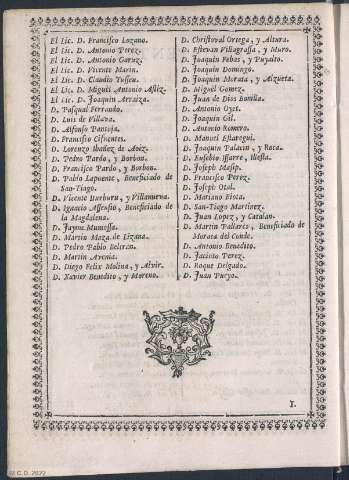 El Lic. D. Francisco Lozano.
El Lic. D. Antonio Perez.
El Lic. D. Antonio Garuz.
El Lic. D. Vicente Marin.
El Lic. D. Claudio
El Lic. D. Miguèl Antonio
El Lic. D. Joaquin Arraiza.
D. Pasqual Ferrando.
D. Luis de Villava.
D. Alfonso Pantoja.
D. Francisco Cifuentes.
D. Lorenzo Ibañez de Aoiz.
D. Pedro Pardo, y Borbon.
D. Francisco Pardo, y Borbon.
D. Pablo Lapuente, Beneficiado de
San-Tiago.
D. Vicente Ibarburu, y Villanueva.
D. Ignacio Assensio, Beneficiado de
la Magdalena.
D. Jayme Muniessa.
D. Martin Maza de Lizana.
D. Pedro Pablo Beltran.
D. Martin
D. Diego Felix Molina, y Alvir.
D. Xavier Benedito, y Moreno.
D. Christoval Ortega, y Altura.
D. Estevan Villagrassa, y Muro.
D. Joaquin Fabas, y Puyalto.
D. Joaquin Domingo.
D. Joaquin Morata, y Alzueta.
D. Miguèl Gomez.
D. Juan de Dios Bonilla.
D. Antonio
D. Joaquin Gil.
D. Antonio Romero.
D. Manuel
D. Joaquin Palacin, y Roca.
D. Eusebio Issarre, Illessa.
D. Joseph Masip.
D. Francisco Perez.
D. Joseph Otal.
D. Mariano Broca.
D. San-Tiago Martinez.
D. Juan Lopez, y Catalan.
D. Martin Pallarès, Beneficiado de
Morata del Conde.
D. Antonio Benedito.
D. Jacinto Perez.
D. Roque Delgado.
D. Juan Pueyo.
I.